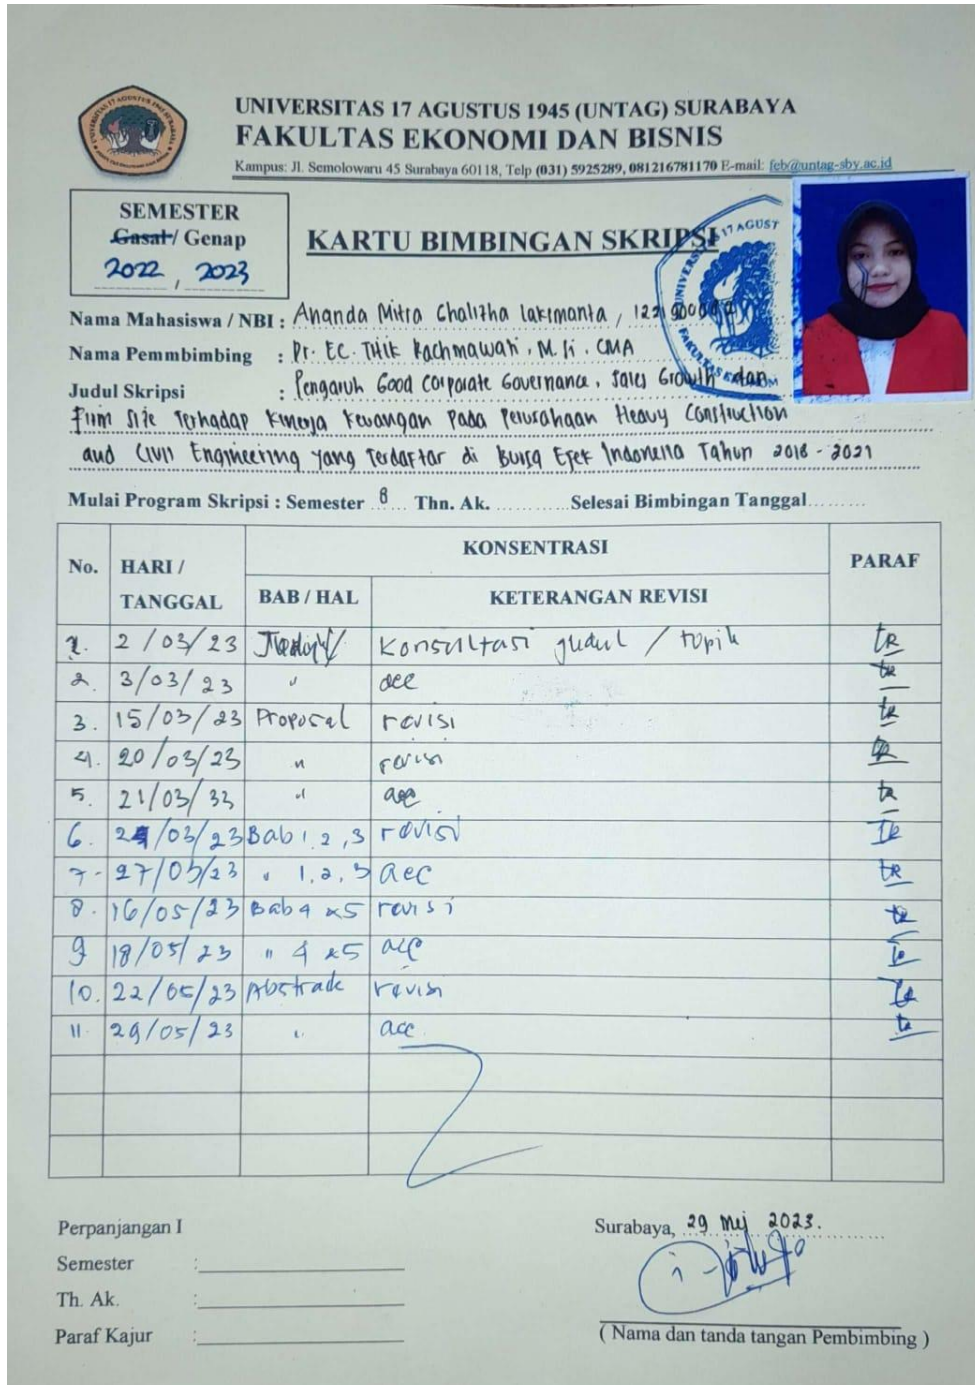 UNIVERSITAS 17 AGUSTUS 1945 (UNTAG) SURABAYA
FAKULTAS EKONOMI DAN BISNIS
Kampus: Jl. Semolowaru 45 Surabaya 60118, Telp (031) 5925289, 081216781170 E-mail: feb@untag-sby.ac.id
SEMESTER
Gasal / Genap
2022, 2023
KARTU BIMBINGAN SKRIPSI
Nama Mahasiswa / NBI : Ananda Mitra Chalitha Laksmanta,
Nama Pemmbimbing : Dr. EC. Titik Rachmawati, M.Si. CMA
Judul Skripsi : Pengaruh Good Corporate Governance, Sales Growth dan
Firm Size Terhadap Kinerja Keuangan Pada Perusahaan Heavy Construction
and Civil Engineering yang Terdaftar di Bursa Efek Indonesia Tahun 2018 - 2021
Mulai Program Skripsi : Semester 8 Thn. Ak. ............ Selesai Bimbingan Tanggal.........
No. HARI / TANGGAL KONSENTRASI PARAF
BAB / HAL KETERANGAN REVISI
1. 2/03/23 Konsultasi judul / topik
2. 3/03/23 " acc
3. 15/03/23 Proposal revisi
4. 20/03/23 " revisi
5. 21/03/33 " acc
6. 24/03/23 Bab 1, 2, 3 revisi
7. 27/03/23 " 1, 2, 3 acc
8. 16/05/23 Bab 4 & 5 revisi
9 18/05/23 " 4 & 5 acc
10. 22/05/23 Abstrack revisi
11. 29/05/23 " acc
Perpanjangan I
Semester :
Th. Ak. :
Paraf Kajur :
Surabaya, 29 Mei 2023.
( Nama dan tanda tangan Pembimbing )